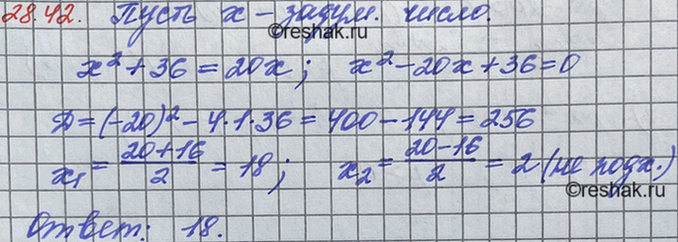 28.42. Пусть x – задум. число.
©reshak.ru
x² + 36 = 20x; x² – 20x + 36 = 0
Д = (-20)² – 4·1·36 = 400 – 144 = 256
x₁ = (20+16)/2 = 18; x₂ = (20–16)/2 = 2 (не подх.)
©reshak.ru
Ответ: 18.